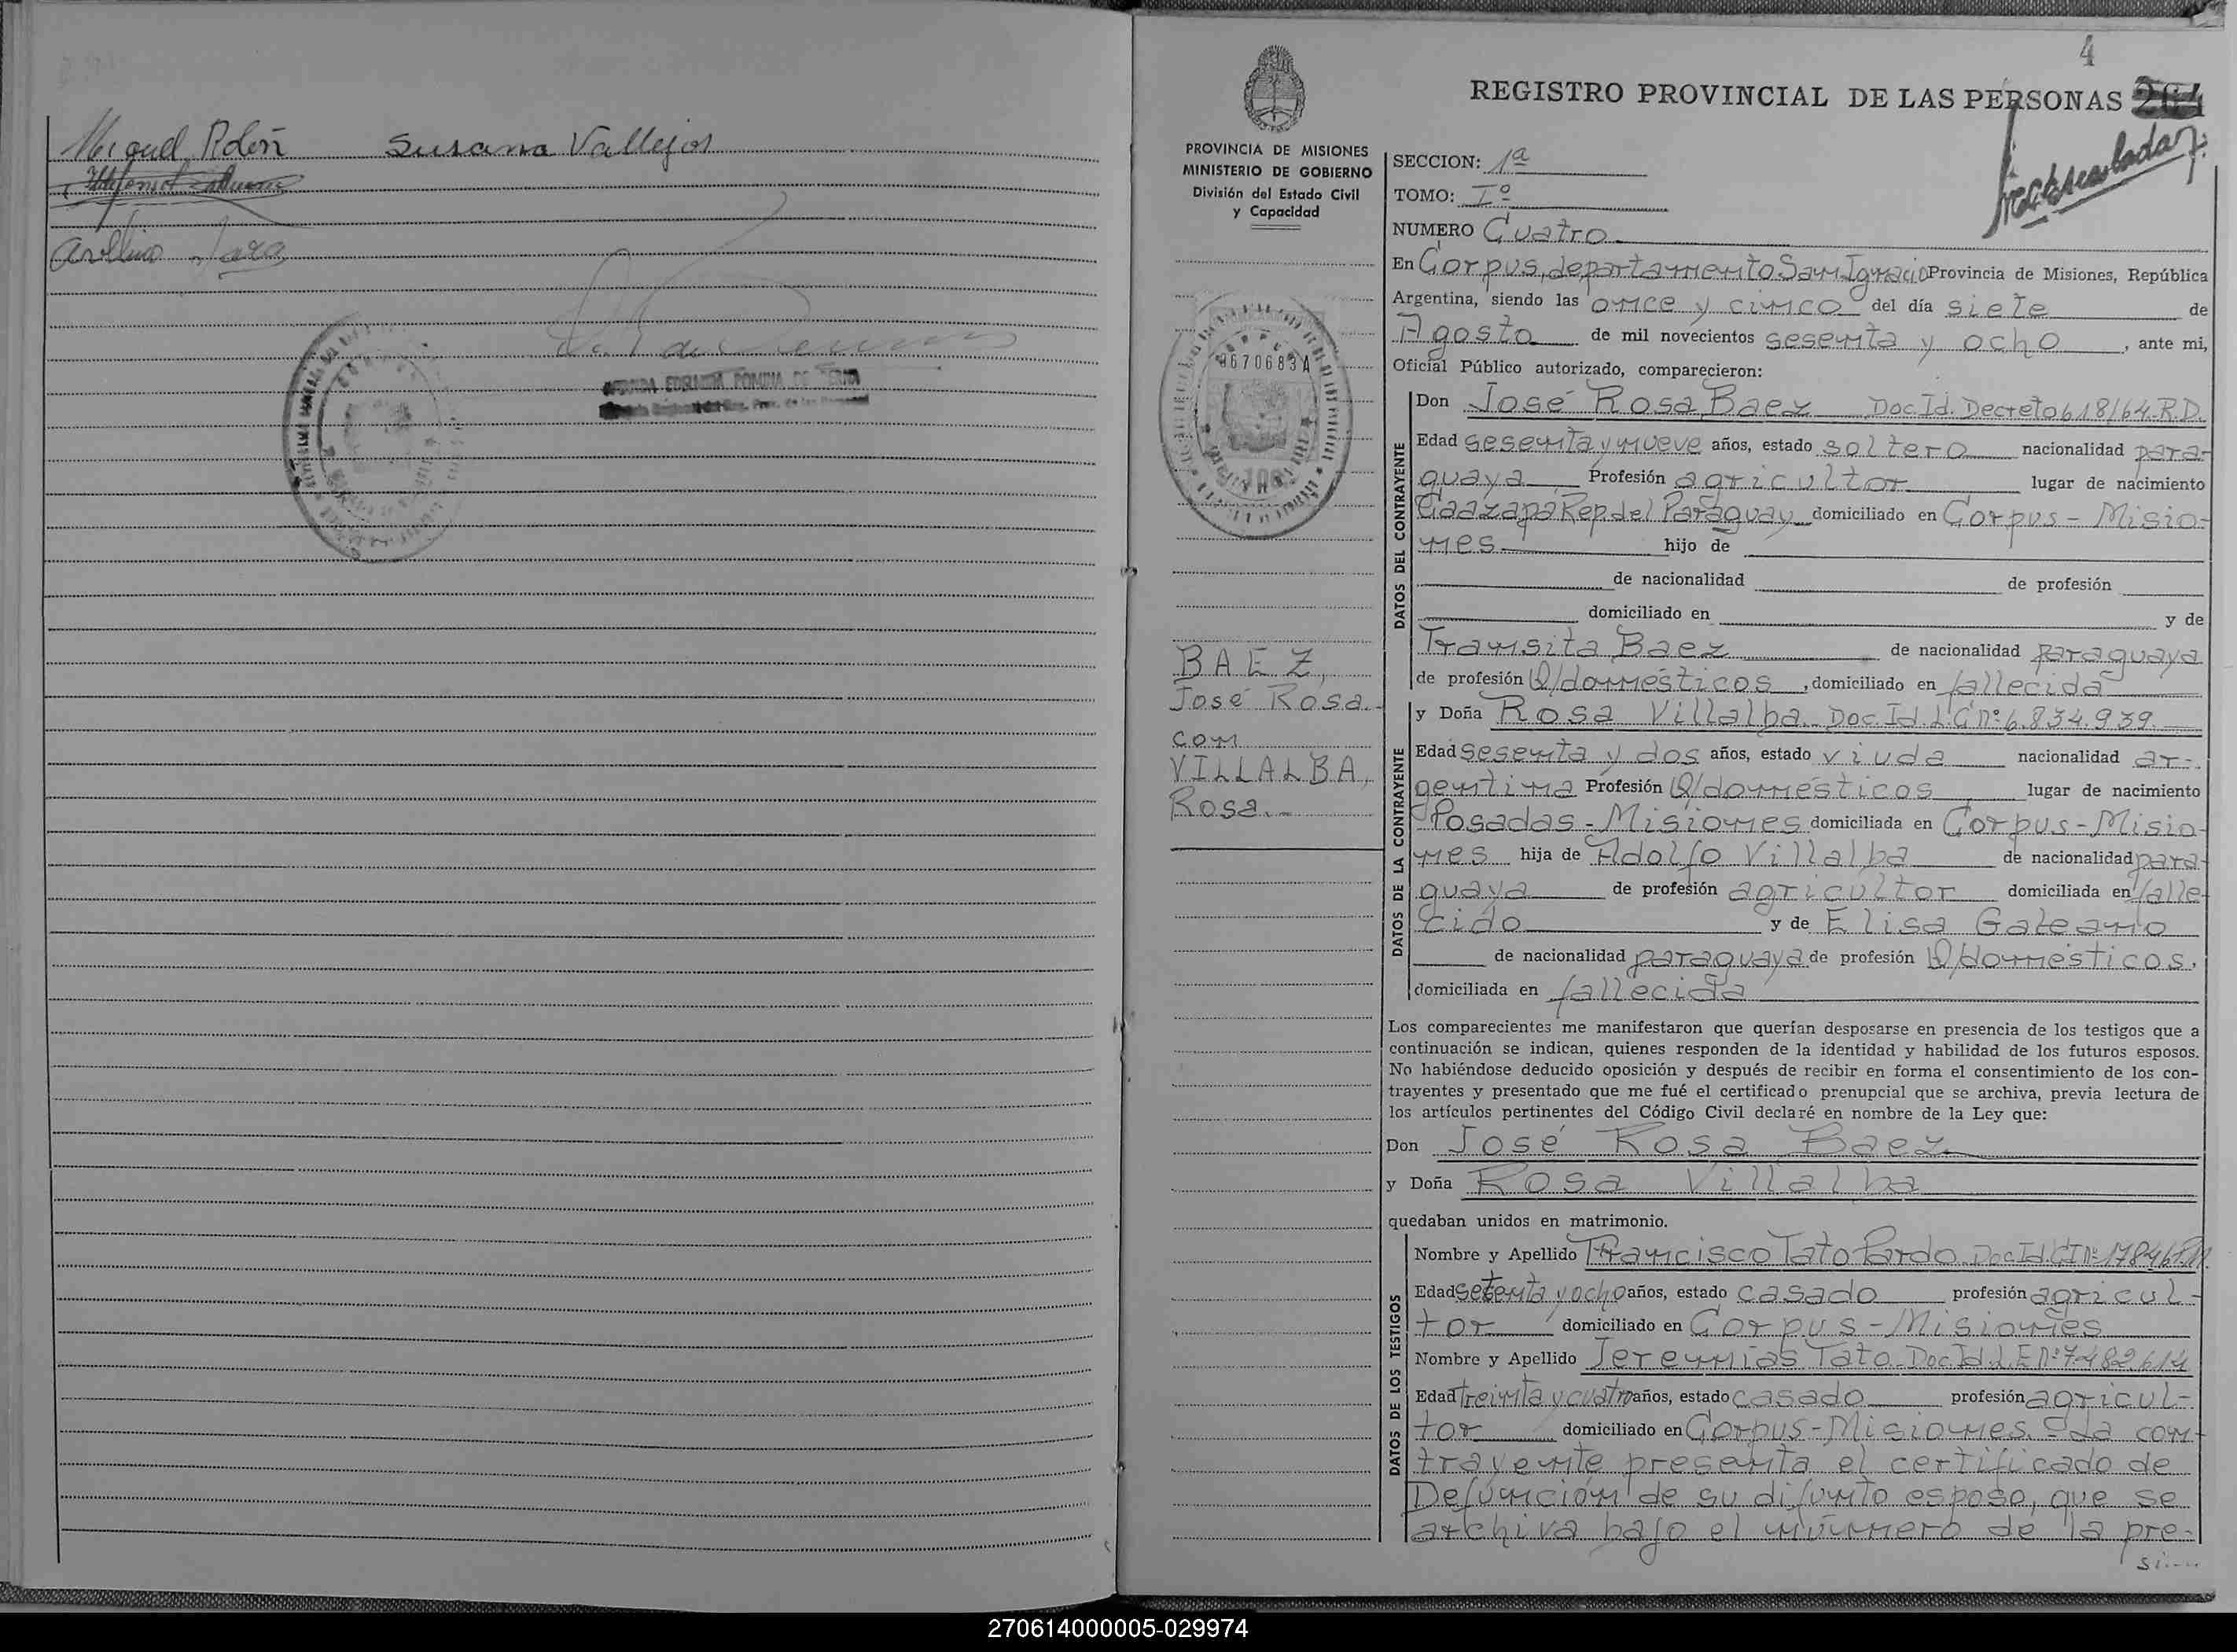 Miguel Susana Vallejos
4
REGISTRO PROVINCIAL DE LAS PERSONAS
PROVINCIA DE MISIONES
MINISTERIO DE GOBIERNO
División del Estado Civil
y Capacidad
SECCION: 1ª
TOMO: Iº
NUMERO Cuatro
En Corpus, departamento San Ignacio Provincia de Misiones, República
Argentina, siendo las once y cinco del día siete de
Agosto de mil novecientos sesenta y ocho, ante mi,
Oficial Público autorizado, comparecieron:
DATOS DEL CONTRAYENTE
Don José Rosa Baez Doc. Id. Decreto 618/64-R.D.
Edad sesenta y nueve años, estado soltero nacionalidad para-
guaya Profesión agricultor lugar de nacimiento
Caazapá Rep. del Paraguay domiciliado en Corpus - Misio-
nes hijo de
de nacionalidad de profesión
domiciliado en y de
Transita Baez de nacionalidad paraguaya
de profesión Q/domésticos, domiciliado en fallecida
DATOS DE LA CONTRAYENTE
y Doña Rosa Villalba Doc. Id. L.C. nº 6.834.939
Edad sesenta y dos años, estado viuda nacionalidad ar-
gentina Profesión Q/domésticos lugar de nacimiento
Posadas - Misiones domiciliada en Corpus - Misio-
nes hija de Adolfo Villalba de nacionalidad para-
guaya de profesión agricultor domiciliada en falle-
cido y de Elisa Galeano
de nacionalidad paraguaya de profesión Q/domésticos,
domiciliada en fallecida
8670683A
BAEZ,
José Rosa.-
con
VILLALBA,
Rosa.-
Los comparecientes me manifestaron que querían desposarse en presencia de los testigos que a
continuación se indican, quienes responden de la identidad y habilidad de los futuros esposos.
No habiéndose deducido oposición y después de recibir en forma el consentimiento de los con-
trayentes y presentado que me fué el certificado prenupcial que se archiva, previa lectura de
los artículos pertinentes del Código Civil declaré en nombre de la Ley que:
Don José Rosa Baez
y Doña Rosa Villalba
quedaban unidos en matrimonio.
DATOS DE LOS TESTIGOS
Nombre y Apellido Francisco Tato Pardo Doc. Id. C.I. nº
Edad setenta y ocho años, estado casado profesión agricul-
tor domiciliado en Corpus - Misiones
Nombre y Apellido Jeremias Tato Doc. Id. L.E. nº 7482614
Edad treinta y cuatro años, estado casado profesión agricul-
tor domiciliado en Corpus - Misiones. La con-
trayente presenta el certificado de
Defunción de su difunto esposo, que se
archiva bajo el número de la pre-
270614000005-029974